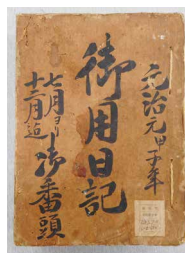 元治元甲子年
御用日記
七月ヨリ
十二月迄
御番頭